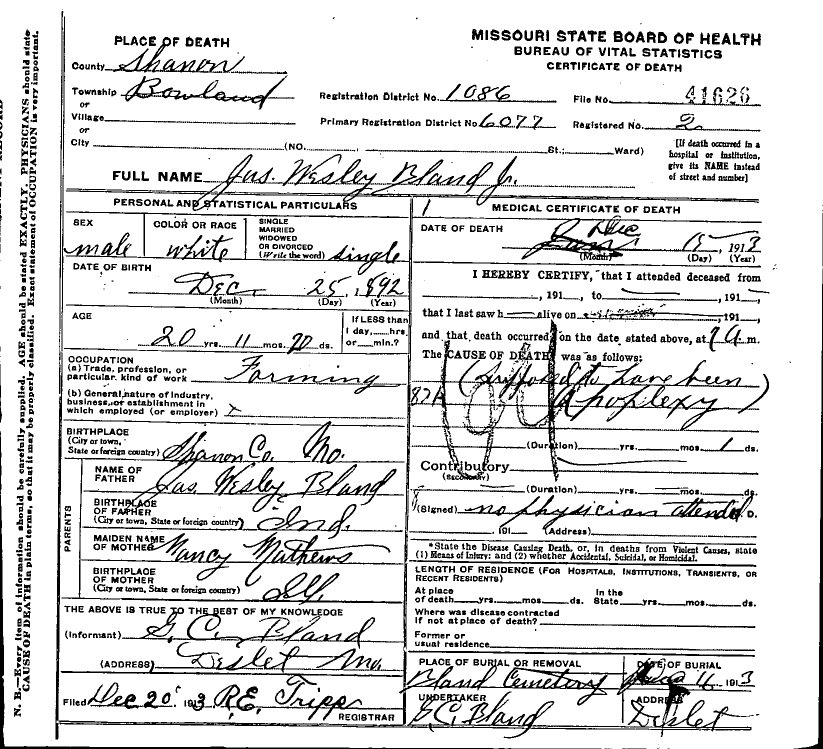 MISSOURI STATE BOARD OF HEALTH
BUREAU OF VITAL STATISTICS
CERTIFICATE OF DEATH
PLACE OF DEATH
County Shanon
Township Bowland
or
Village
or
City (NO. St.; Ward)
Registration District No. 1086 File No. 41626
Primary Registration District No. 6077 Registered No. 2
[If death occurred in a hospital or institution, give its NAME instead of street and number]
FULL NAME Jas. Wesley Bland Jr.
PERSONAL AND STATISTICAL PARTICULARS
SEX male
COLOR OR RACE white
SINGLE MARRIED WIDOWED OR DIVORCED (Write the word) single
DATE OF BIRTH
Dec. 25, 1892
(Month) (Day) (Year)
AGE
20 yrs. 11 mos. 20 ds.
If LESS than 1 day,....hrs. or....min.?
OCCUPATION
(a) Trade, profession, or particular kind of work Farming
(b) General nature of industry, business, or establishment in which employed (or employer) x
BIRTHPLACE
(City or town, State or foreign country) Shanon Co. Mo.
PARENTS
NAME OF FATHER Jas. Wesley Bland
BIRTHPLACE OF FATHER (City or town, State or foreign country) Ind.
MAIDEN NAME OF MOTHER Nancy Mathews
BIRTHPLACE OF MOTHER (City or town, State or foreign country)
THE ABOVE IS TRUE TO THE BEST OF MY KNOWLEDGE
(Informant) G. C. Bland
(ADDRESS) Deslet Mo.
Filed Dec 20 1913 R.E. Tripp
REGISTRAR
MEDICAL CERTIFICATE OF DEATH
DATE OF DEATH
Dec 15 1913
(Month) (Day) (Year)
I HEREBY CERTIFY, that I attended deceased from
, 191 , to , 191 ,
that I last saw h alive on , 191 ,
and that death occurred on the date stated above, at m.
The CAUSE OF DEATH was as follows:
(Supposed to have been
Apoplexy)
(Duration) yrs. mos. 1 ds.
Contributory
(SECONDARY)
(Duration) yrs. mos. ds.
(Signed) no physician attended D.
, 191 (Address)
*State the Disease Causing Death, or, in deaths from Violent Causes, state
(1) Means of Injury; and (2) whether Accidental, Suicidal, or Homicidal.
LENGTH OF RESIDENCE (FOR HOSPITALS, INSTITUTIONS, TRANSIENTS, OR RECENT RESIDENTS)
At place of death yrs. mos. ds. In the State yrs. mos. ds.
Where was disease contracted
if not at place of death?
Former or
usual residence
PLACE OF BURIAL OR REMOVAL
Bland Cemetery
DATE OF BURIAL
1913
UNDERTAKER
G.C. Bland
ADDRESS
Deslet
N. B.—Every item of information should be carefully supplied. AGE should be stated EXACTLY. PHYSICIANS should state
CAUSE OF DEATH in plain terms, so that it may be properly classified. Exact statement of OCCUPATION is very important.